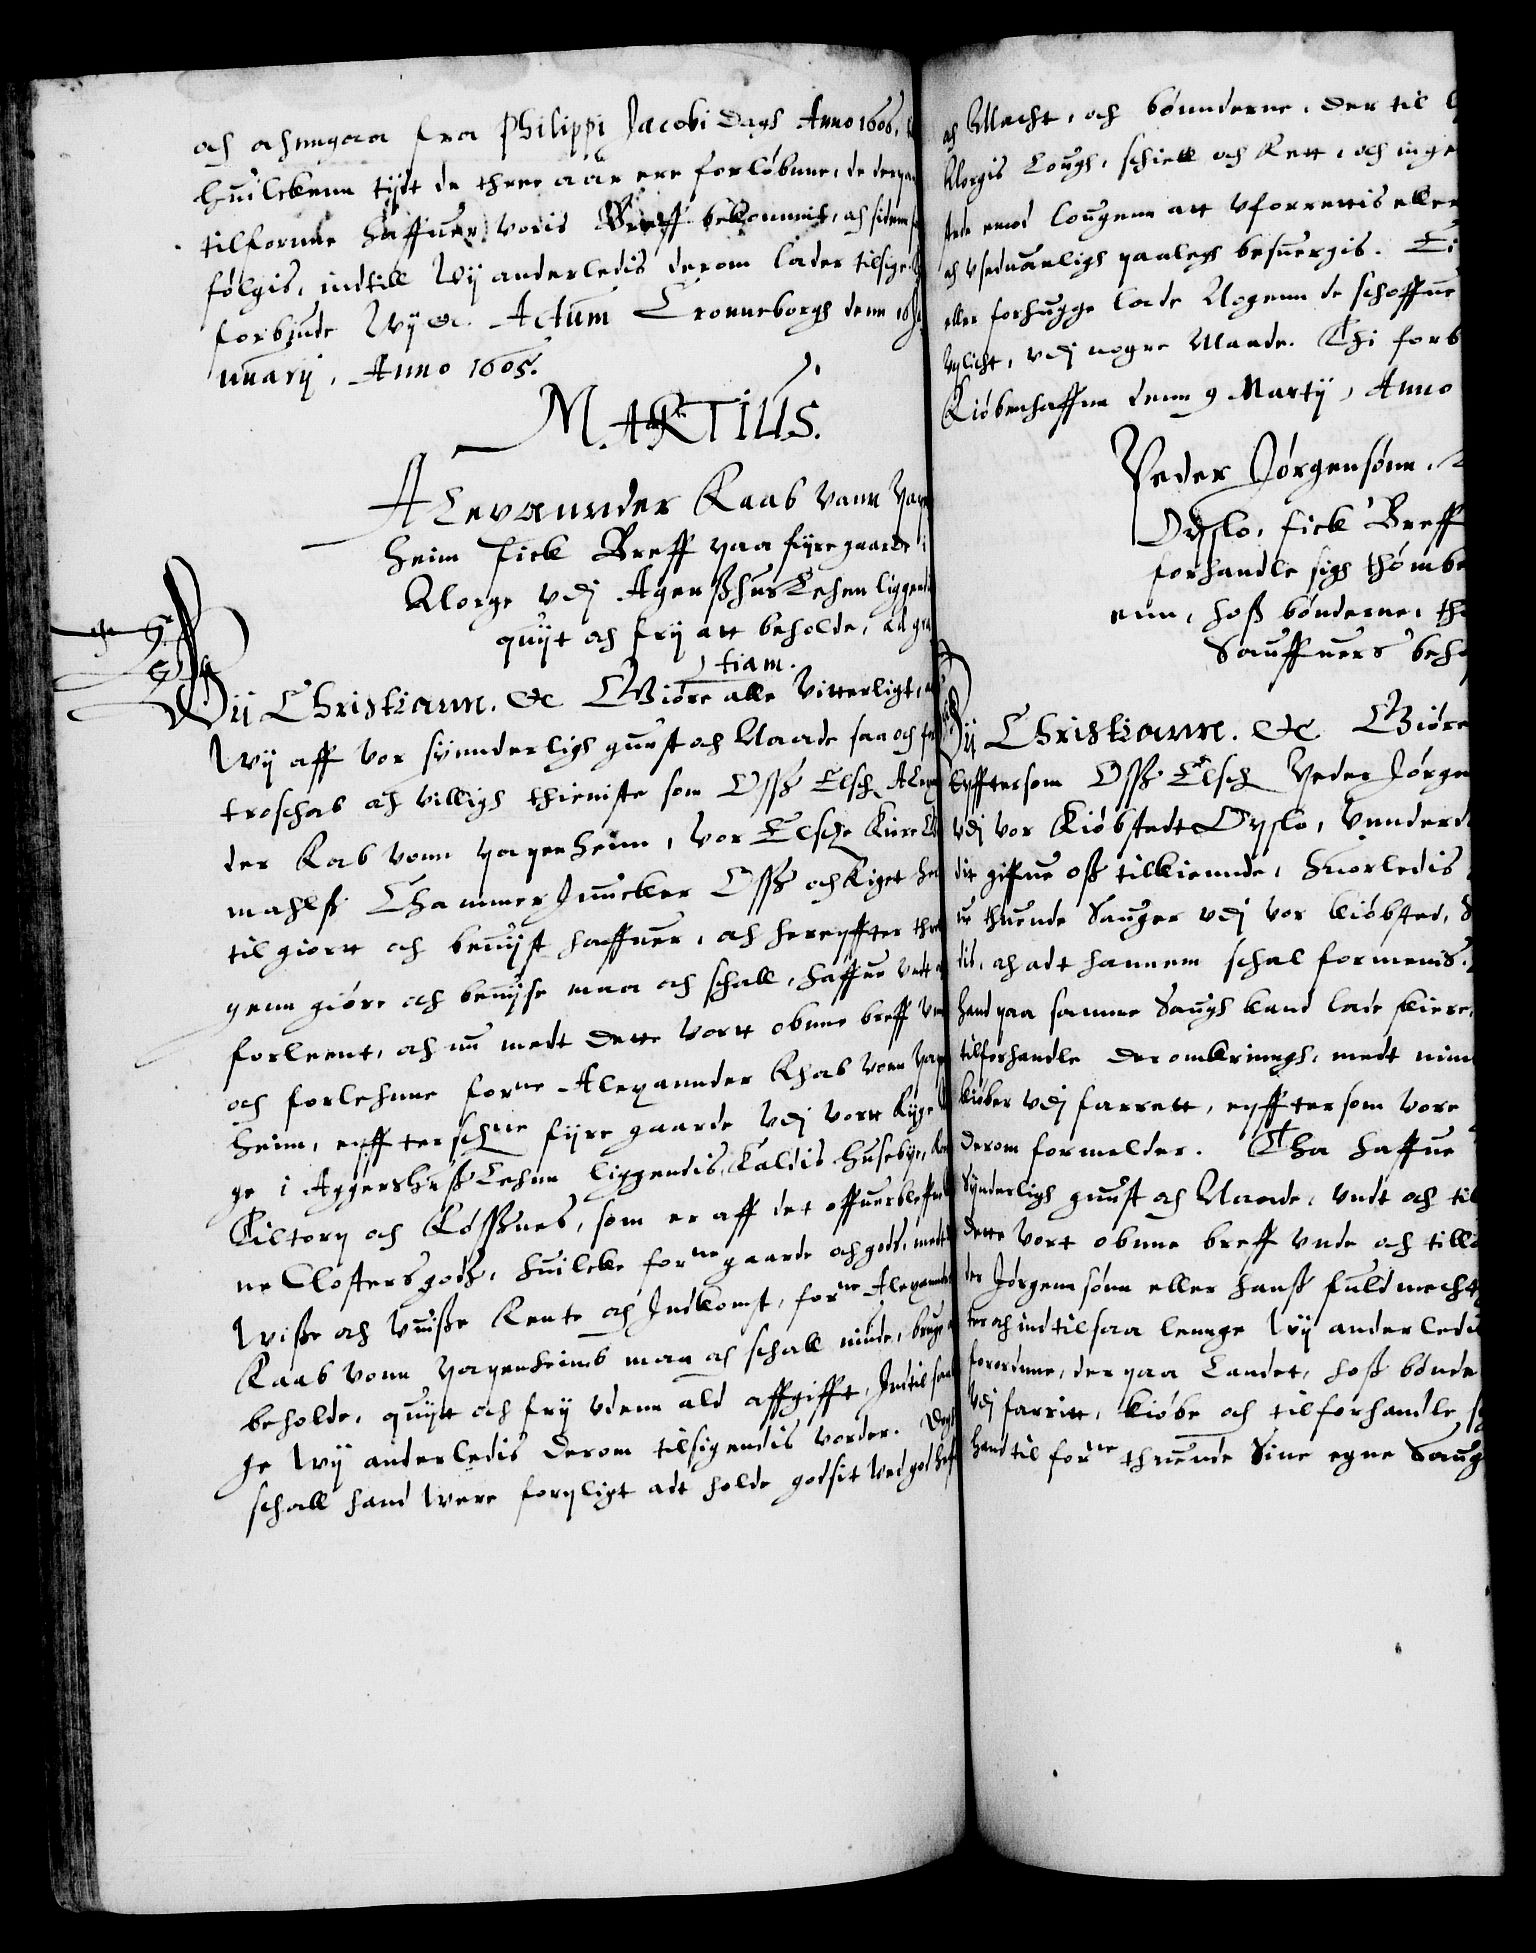 och ahnngaa fra Philippi Jacobi dags Anno 1606,
huilckenn tijdt de three aar ere forløbnne, de derpaa
tilfornne haffuer voris Breff bekommit, och siden
følgis, indtill Wij anderledis derom lader tilsige
forbiude Wij etc. Actum Cronneborgh denn 16 Ja
nuarij, Anno 1605.
MARTIUS.
Alexannder Raab vonn Pap
heim fick Breff paa fijre gaarde i
Norge vdj Agershus Lehen liggend
quijt och frij att beholde, ad gra
tiam.
Wij Christiann. etc Giøre alle Vitterligt, at
Wij aff vor sÿnnderligh gunst och Naade saa och for
troschab och villigh thieniste som Osß Elsch. Alexan
der Rab vonn papenheim, vor Elsche Kiere
mahlß Chammer Junncker Osß och Riget her
til giortt och beuijst haffuer, och herepffter
genn giøre och beuijse maa och schall, haffue vndt
forleent, och nu medt dette vortt obnne breff
och forlehnne forne Alexannder Rhab vonn Pap
heim, epffterschne fijre gaarde vdj vortt Rige
ge i Aggershuß Lehnn liggendis, Kaldis Husebye,
Kiltorp och Køßnes, som er aff det offuerbleff
ne Closters gods, huilcke forne gaarde och gods, medt
Wiße och Vuiße Rente och Indkomst, forne Alexannder
Raab vonn papenheimb maa och schall niude, bruge
beholde, quijtt och frij vdenn ald affgifft, Indtil saa
ge Wij anderledis derom tilsigendis vorder. Dog
schall hand Were forpligt adt holde godsit Wed god heff
och Macht, och bønnderne, der til
Norgis Lough, schiell och Rett, och inge
stede emod Lougenn att vforrettis eller
och vseduanligh paalegh besuergis. Ei
eller forhugge lade Nogenn de schoffue
vplicht, vdj nogre Maade. Thi forb
Kiøbenhaffnn denn 9 Martij, Anno
Peder Jørgensønn,
Opslo, fick Breff
forhandle sigh thømbe
enn, hoß bønderne,
Sauffuers beho
Wij Christiann. etc Giøre
Epfftersom Osß Elsch Peder Jørgen
vdj vor Kiøbstedt Opslo, Vnnderd
dit giffue oß tilkiennde, huorledis
ue thuende Sauger vdj vor kiøbsted,
tis, och adt hannem schal formenis.
hand paa samme Saugh kand lade skiere,
tilforhandle der omkringh, medt min
kiøber vdj farrett, epfftersom vore
derom formelder. Tha haffue
Synderligh gunst och Naade, vndt och til
dette vort obnne breff vnde och tilla
der Jørgennsønn eller hanß fuldmecht
ter och indtil saa lennge Wij anderledi
forordnne, der paa Landet, hoß bønde
vdj farritt, kiøbe och tilforhandle
hand til forne thuende Sine egne Saug